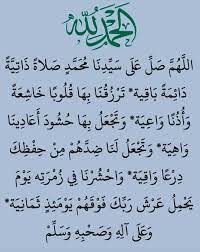 الحمد لله
اللَّهُمَّ صَلِّ عَلَى سَيِّدِنَا مُحَمَّدٍ صَلَاةً ذَاتِيَّةً
دَائِمَةً بَاقِيَة* تَرْزُقُنَا بِهَا قُلُوبًا خَاشِعَةً
وَأُذُنًا وَاعِيَة* وَتَجْعَلُ بِهَا حُشُودَ أَعَادِينَا
وَاهِيَة* وَتَجْعَلُ لَنَا ضِدَّهُمْ مِنْ حِفْظِكَ
دِرْعًا وَاقِيَة* وَاحْشُرْنَا فِي زُمْرَتِهِ يَوْمَ
يَحْمِلُ عَرْشَ رَبِّكَ فَوْقَهُمْ يَوْمَئِذٍ ثَمَانِيَة*
وَعَلَى آلِهِ وَصَحْبِهِ وَسَلِّمْ